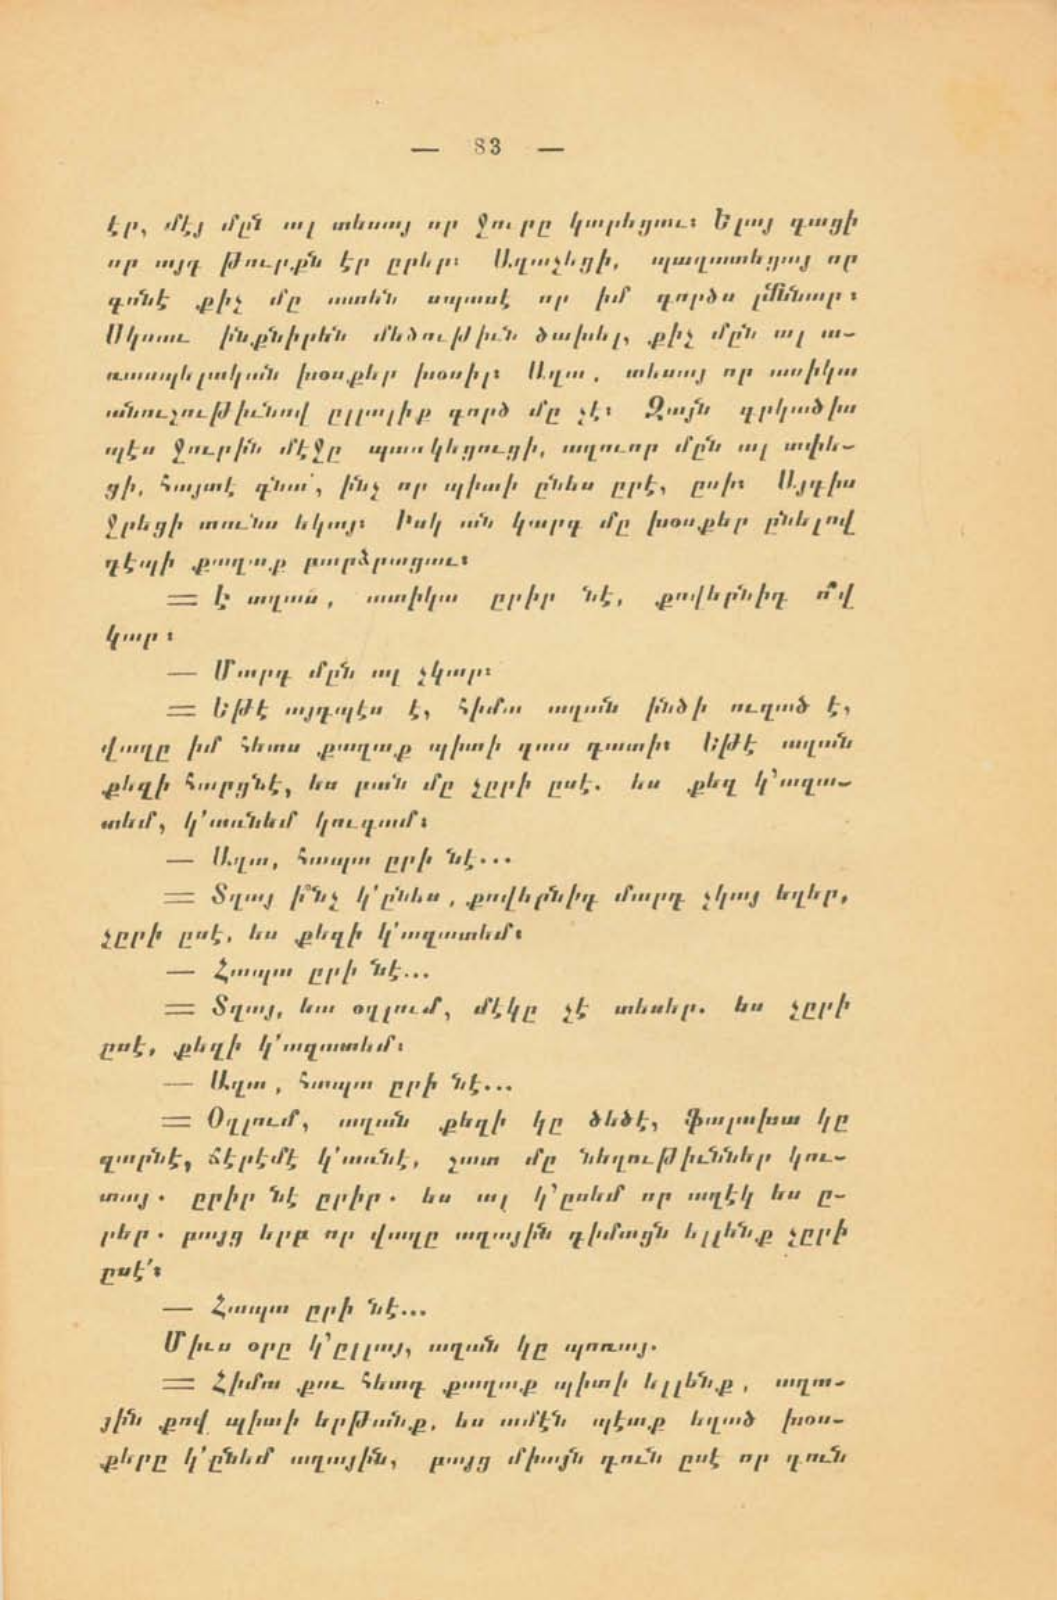 — 83 —
էր, մէյ մըն ալ տեսայ որ Ջուրը կարեցաւ։ Ելայ գացի
որ այդ Թուրքն էր ըրեր։ Աղաչեցի, պաղատեցայ որ
գոնէ քիչ մը ատեն սպասէ որ իմ գործս լմննար։
Սկսաւ ինքնիրեն մեծութիւն ծախել, քիչ մըն ալ ա-
ռասպելական խօսքեր խօսիլ։ Աղա, տեսայ որ ասիկա
անուշութիւնով ըլլալիք գործ մը չէ։ Չայն գրկածիս
պէս ջուրին մէջը պառկեցուցի, աղուոր մըն ալ տփե-
ցի, հայտէ գնա՛, ինչ որ պիտի ընես ըրէ, ըսի։ Այդիս
ջրեցի տունս եկայ։ Իսկ ան կարգ մը խօսքեր ընելով
դէպի քաղաք բարձրացաւ։
= Է աղաս, ատիկա ըրիր նէ, քովերնիդ ո՞վ
կար։
— Մարդ մըն ալ չկար։
= Եթէ այդպէս է, հիմա աղան ինծի ուզած է,
վաղը իմ հետս քաղաք պիտի գաս գատի։ Եթէ աղան
քեզի հարցնէ, ես բան մը չըրի ըսէ. ես քեզ կ՚ազա-
տեմ, կ՚առնեմ կուգամ։
— Աղա, հապա ըրի նէ...
= Տղայ ի՞նչ կ՚ընես, քովերնիդ մարդ չկայ եղեր,
չըրի ըսէ, ես քեզի կ՚ազատեմ։
— Հապա ըրի նէ...
= Տղայ, եա օղլում, մէկը չէ տեսեր. ես չըրի
ըսէ, քեզի կ՚ազատեմ։
— Աղա, հապա ըրի նէ...
= Օղլում, աղան քեզի կը ծեծէ, ֆալախա կը
զարնէ, ճէրէմէ կ՚առնէ, շատ մը նեղութիւններ կու-
տայ. ըրիր նէ ըրիր. ես ալ կ՚ըսեմ որ աղէկ ես ը-
րեր. բայց երբ որ վաղը աղային դիմացն ելլենք չըրի
ըսէ՛։
— Հապա ըրի նէ...
Միւս օրը կ՚ըլլայ, աղան կը պոռայ.
= Հիմա քու հետդ քաղաք պիտի ելլենք, աղա-
յին քով պիտի երթանք, ես ամէն պէտք եղած խօս-
քերը կ՚ընեմ աղային, բայց միայն դուն ըսէ որ դուն